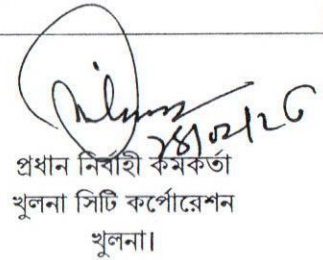 ২৪/০২/২৬
প্রধান নির্বাহী কর্মকর্তা
খুলনা সিটি কর্পোরেশন
খুলনা।